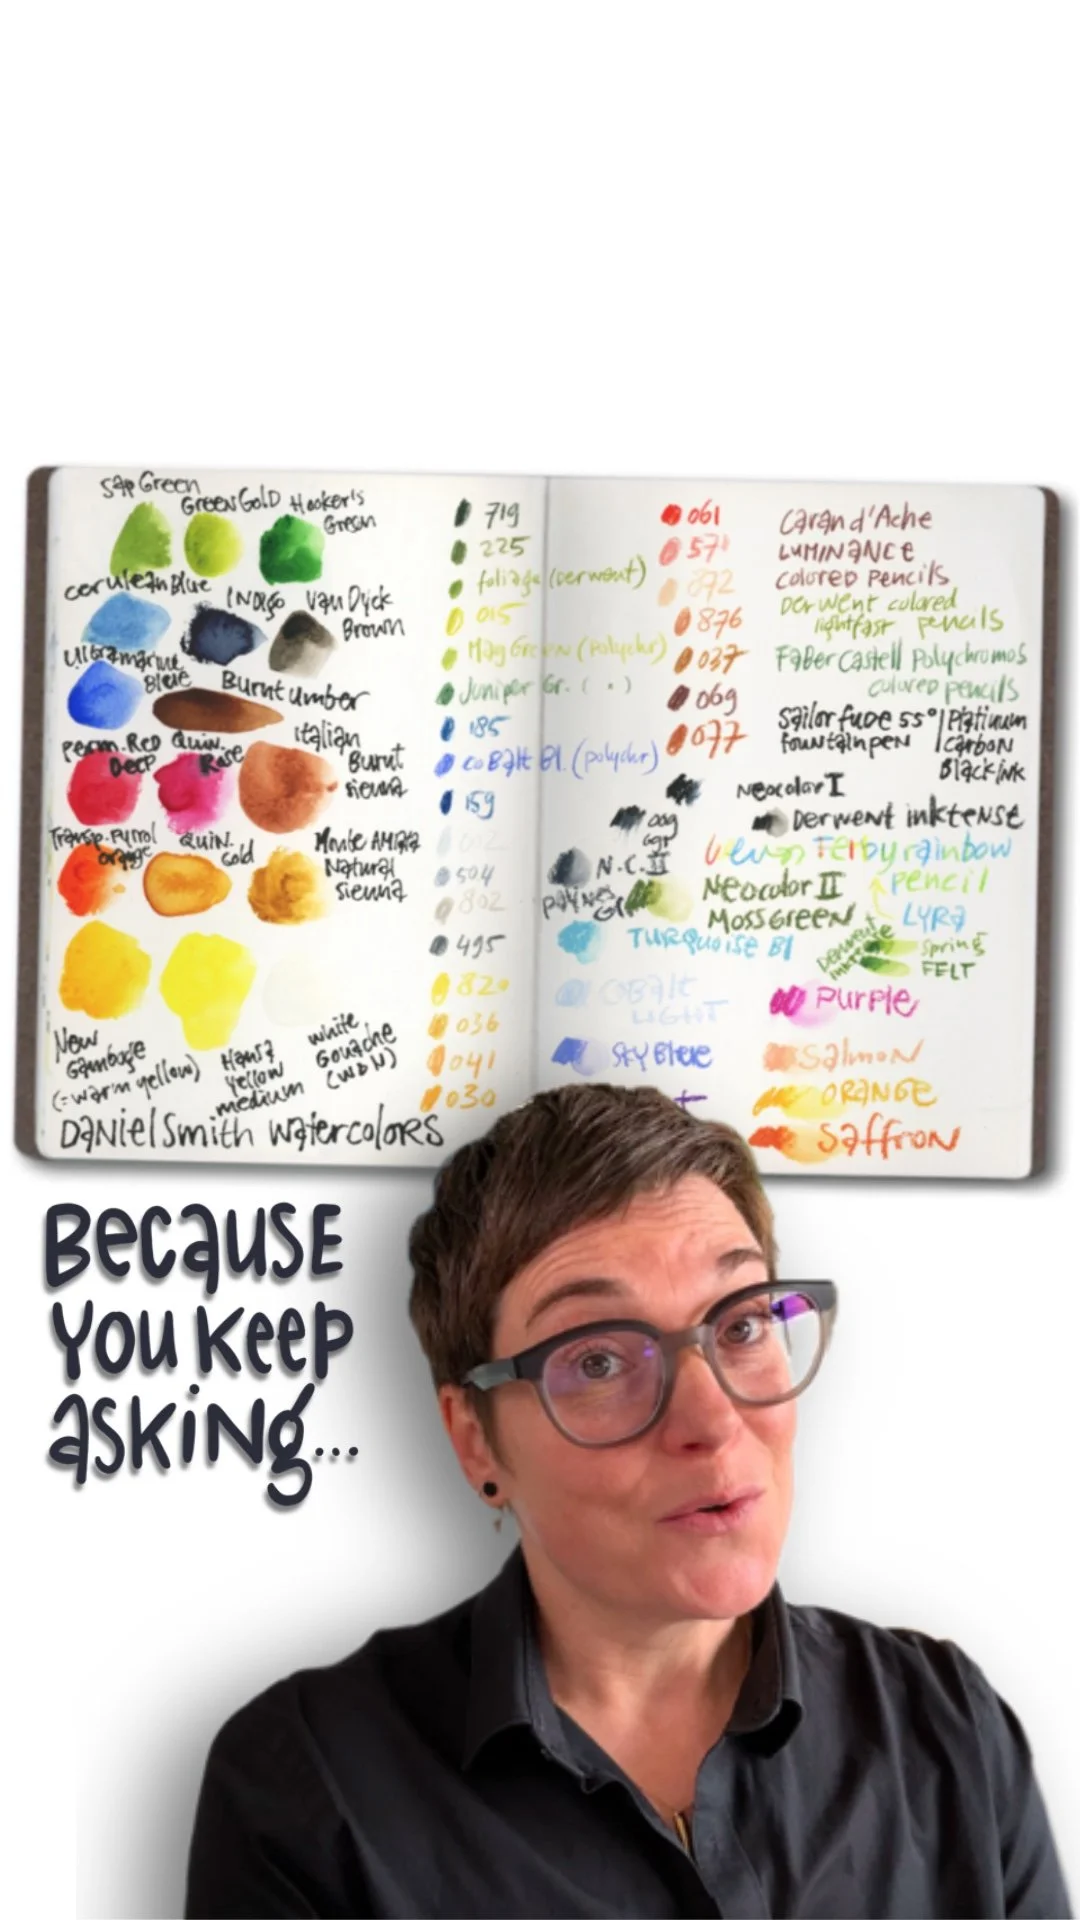 Sap Green
Green Gold
Hooker's
Green
cerulean Blue
INDIGO
Van Dyck
Brown
Ultramarine
Blue
Burnt umber
Perm. Red
Deep
Quin.
Rose
Italian
Burnt
sienna
Transp. Pyrrol
orange
Quin.
Gold
Monte AMiata
Natural
sienna
New
Gamboge
(=warm yellow)
Hansa
yellow
medium
white
Gouache
(W&N)
Daniel Smith watercolors
719
225
foliage (Derwent)
015
May Green (polychr)
Juniper Gr. ( " )
185
coBalt Bl. (polychr)
159
002
504
802
495
820
036
041
030
061
571
872
876
037
069
077
Caran d'Ache
LUMINANCE
COLORED PENCILS
Derwent colored
lightfast pencils
FaBer Castell Polychromos
colored pencils
Sailor fude 55° | Platinum
fountain pen | Carbon
Black ink
Neocolor I
009
Derwent inktense
N.C. II
Payne's
Gr
FErby rainbow
pencil
LYRA
Neocolor II
Moss Green
TURQUOISE Bl
Derwent
inktense
Spring
FELT
COBALT
LIGHT
Purple
Sky Blue
Salmon
ORANGE
Saffron
Because
you keep
asking...